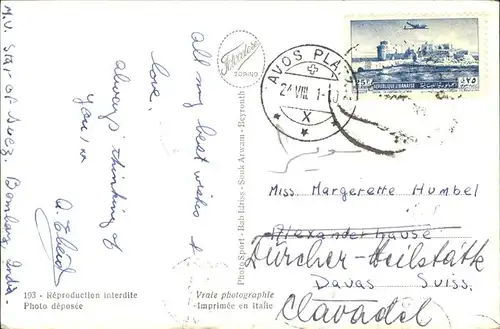 M.V. Star of Suez, Bombay, India.
All my best wishes &
love.
Always thinking of
you,
193 - Réproduction interdite
Photo déposée
Fotocelere
TORINO
Photo Sport - Bab Idriss - Souk Arwam - Beyrouth
Vraie photographie
Imprimée en Italie
AVOS PLA
24 VIII
X
REPUBLIQUE LIBANAISE
Miss Margerette Humbel
Alexanderhause
Zürcher-Heilstätte
Davas Suiss.
Clavadel